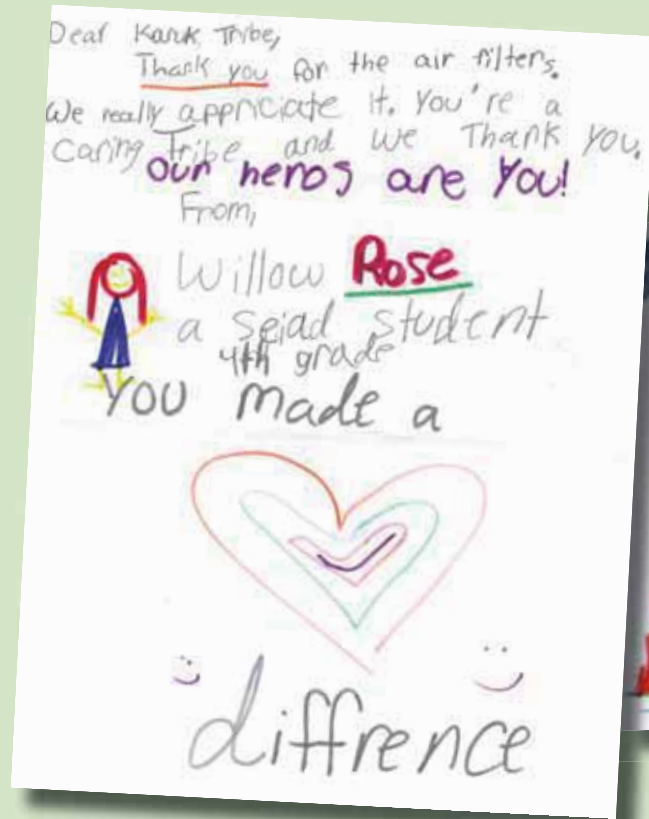 Dear Karuk Tribe,
Thank you for the air filters.
We really appriciate it. You're a
Caring Tribe and we Thank You.
our heros are You!
From,
Willow Rose
a Seiad Student
4th grade
You made a
diffrence